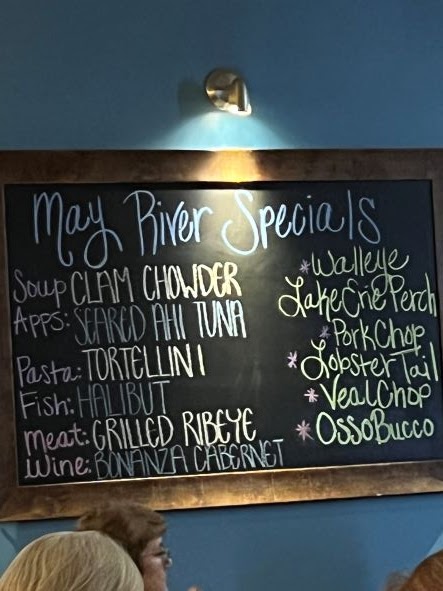 May River Specials
Soup CLAM CHOWDER
Apps: SEARED AHI TUNA
Pasta: TORTELLINI
Fish: HALIBUT
Meat: GRILLED RIBEYE
Wine: BONANZA CABERNET
*Walleye
Lake Erie Perch
*Pork Chop
*Lobster Tail
*Veal Chop
*Osso Bucco